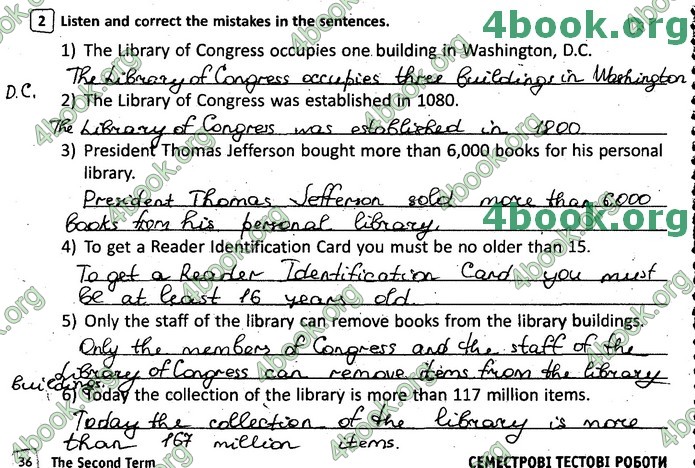 2 Listen and correct the mistakes in the sentences.
4book.org
1) The Library of Congress occupies one building in Washington, D.C.
The Library of Congress occupies three buildings in Washington
D.C.
2) The Library of Congress was established in 1080.
The Library of Congress was established in 1800.
3) President Thomas Jefferson bought more than 6,000 books for his personal
library.
President Thomas Jefferson sold more than 6000
books from his personal library.
4book.org
4) To get a Reader Identification Card you must be no older than 15.
To get a Reader Identification Card you must
be at least 16 years old.
5) Only the staff of the library can remove books from the library buildings.
Only the members of Congress and the staff of the
Library of Congress can remove items from the library
buildings.
6) Today the collection of the library is more than 117 million items.
Today the collection of the library is more
than 167 million items.
4book.org
36 The Second Term
СЕМЕСТРОВІ ТЕСТОВІ РОБОТИ